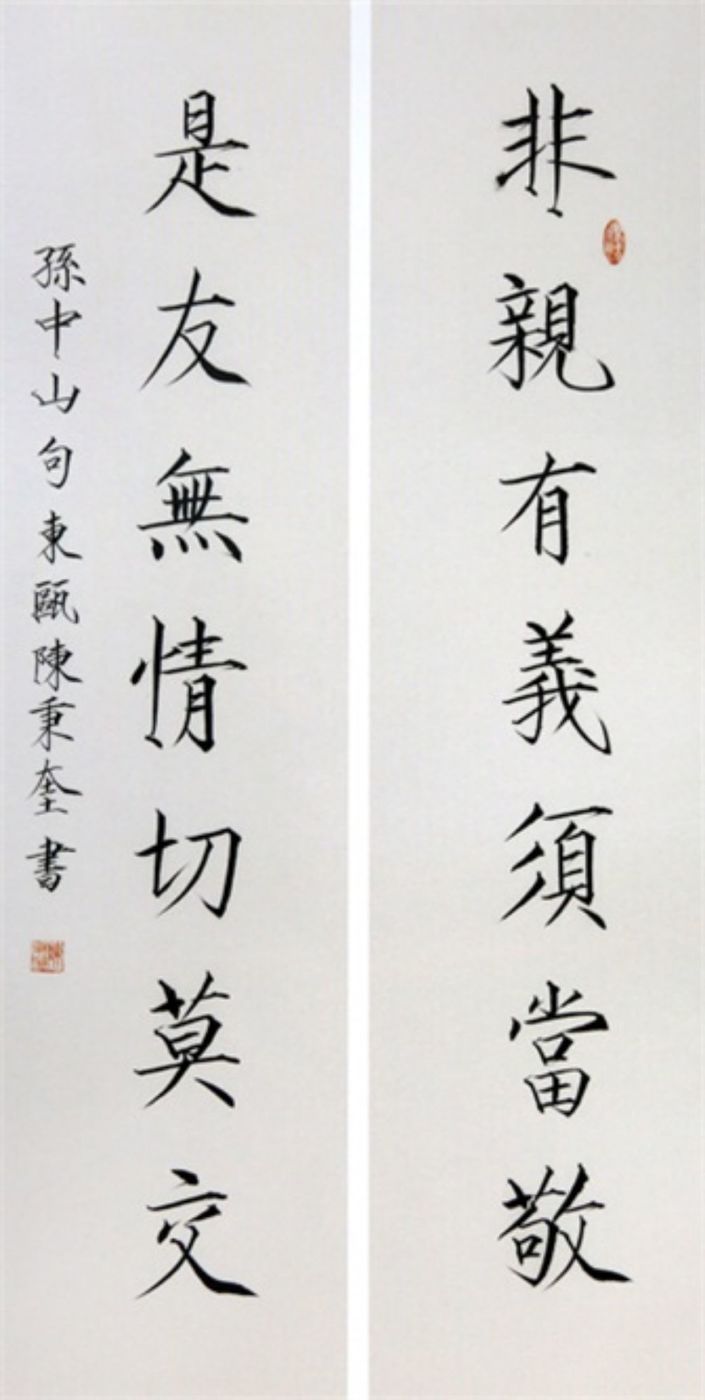 非親有義須當敬
是友無情切莫交
孫中山句東甌陳秉奎書